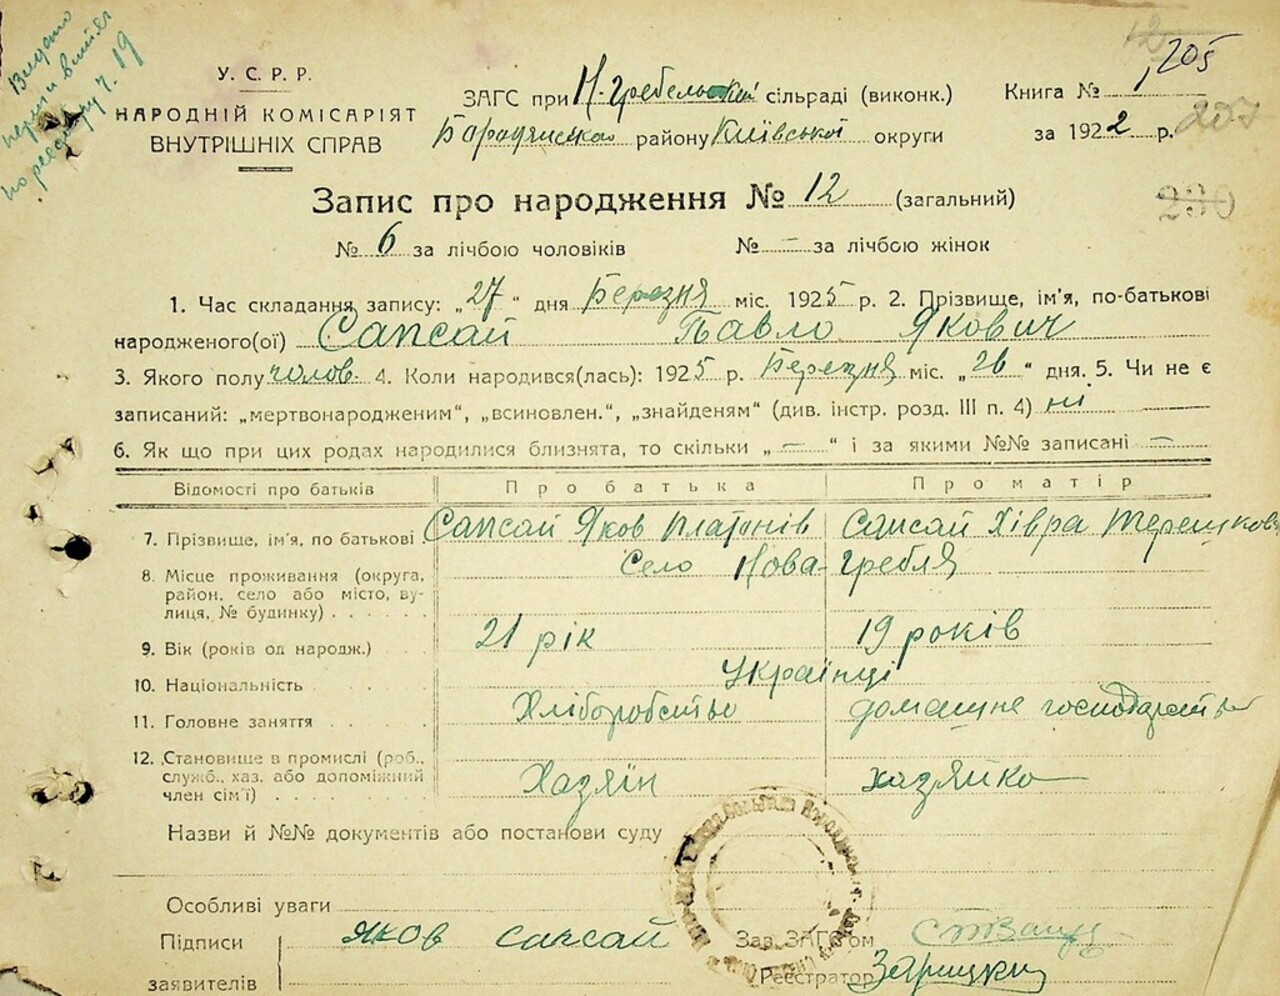 205
207
230
У. С. Р. Р.
НАРОДНІЙ КОМІСАРІЯТ
ВНУТРІШНІХ СПРАВ
ЗАГС при Н-Гребельській сільраді (виконк.) Книга № 1
району Київської округи за 1922 р.
Запис про народження № 12 (загальний)
№ 6 за лічбою чоловіків № — за лічбою жінок
1. Час складання запису: „27“ дня Березня міс. 1925 р. 2. Прізвище, ім'я, по-батькові
народженого(ої) Сапсай Павло Якович
3. Якого полу чолов. 4. Коли народився(лась): 1925 р. Березня міс. „26“ дня. 5. Чи не є
записаний: „мертвонародженим“, „всиновлен.“, „знайденям“ (див. інстр. розд. III п. 4) ні
6. Як що при цих родах народилися близнята, то скільки „—“ і за якими №№ записані —
Відомості про батьків Про батька Про матір
7. Прізвище, ім'я, по батькові Сапсай Яков Платонів Сапсай Хівра Терешкова
8. Місце проживання (округа, Село Нова-Гребля
район, село або місто, ву-
лиця, № будинку)
9. Вік (років од народж.) 21 рік 19 років
10. Національність Українці
11. Головне заняття Хліборобство домашнє господарство
12. Становище в промислі (роб.,
служб., хаз. або допоміжний Хазяїн хазяйка
член сім'ї)
Назви й №№ документів або постанови суду
Особливі уваги
Підписи Яков Сапсай Зав. ЗАГС'ом
заявителів Реєстратор Зарицкий